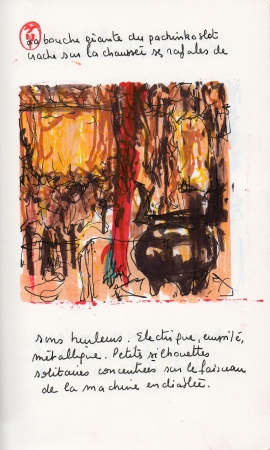 La bouche géante du pachinko slot
crache sur la chaussée ses rafales de
sons hurleurs. Electrique, survolté,
métallique. Petites silhouettes
solitaires concentrées sur le faisceau
de la machine endiablée.